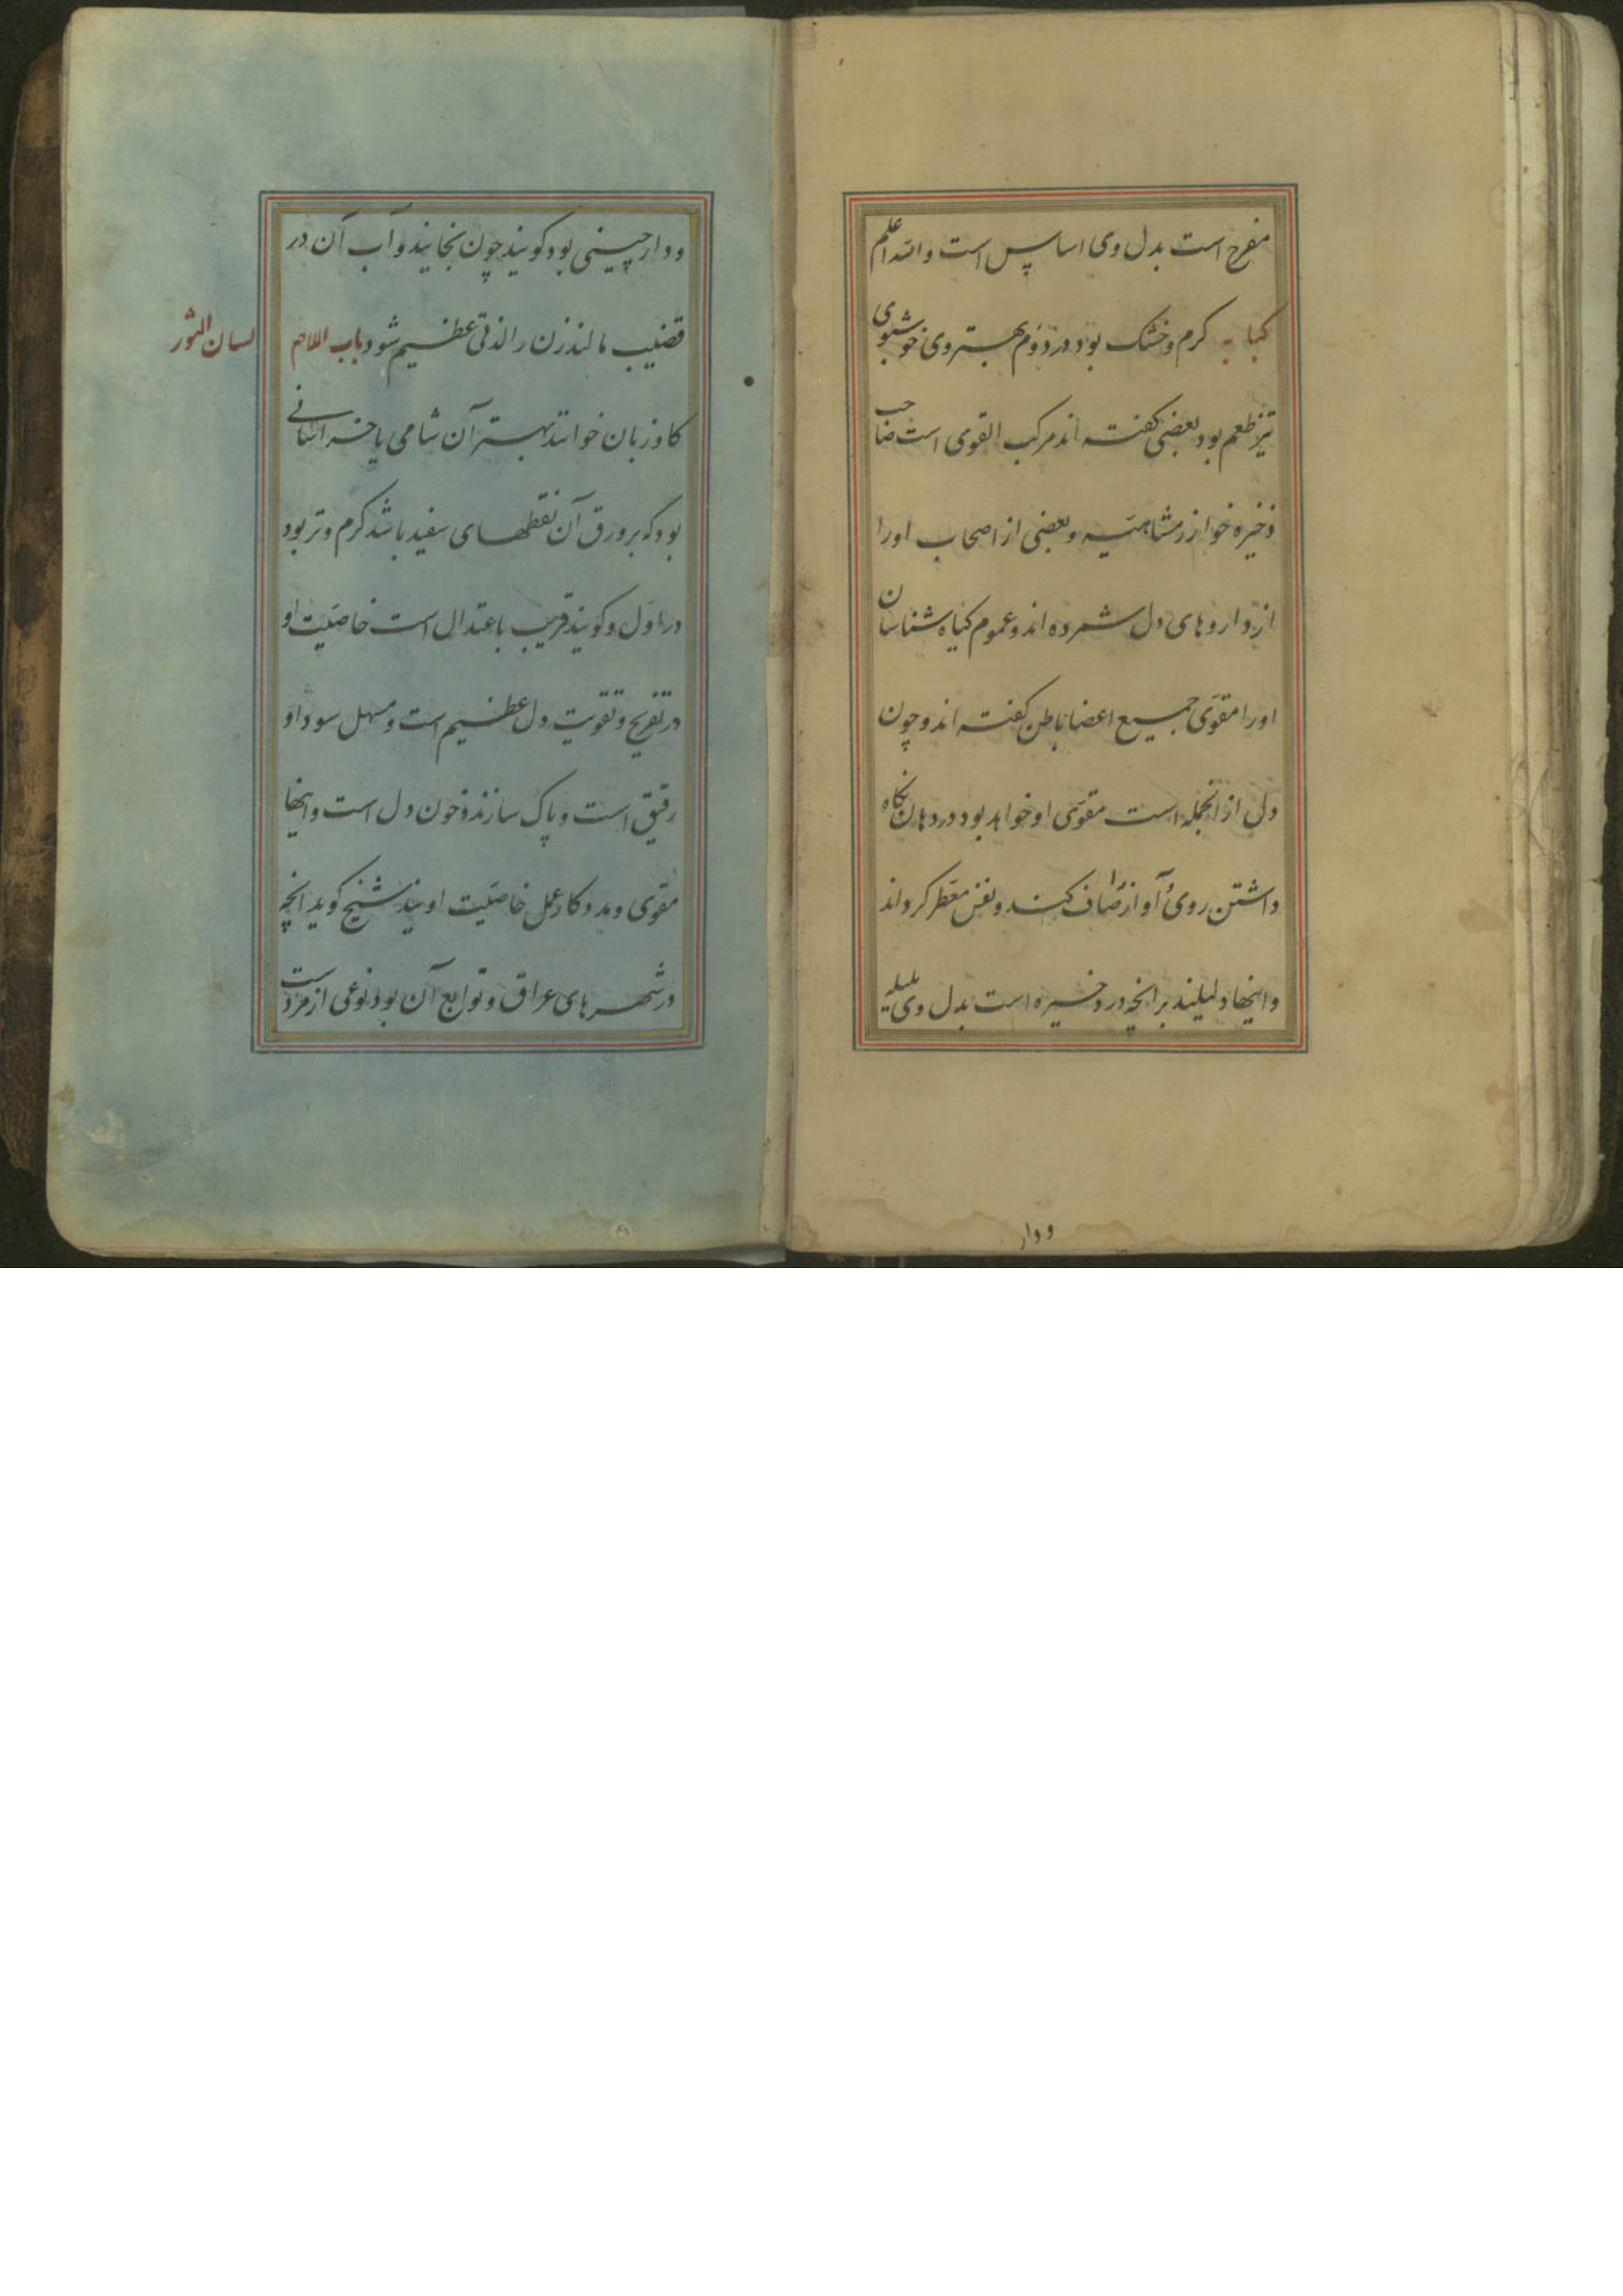 مفرح است بدل وی اساپس است والله اعلم
کبابه کرم وخشک بود در دوم بهتر وی خوشبوی
تیز طعم بود بعضی کفته اند مرکب القوی است صاحب
ذخیره خوارزمشاهیه وبعضی از اصحاب اورا
از داروهای دل شمرده اند وعموم کیاه شناسان
اورا مقوی جمیع اعضا باطن کفته اند وچون
دل از انجمله است مقوی او خواهد بود در دهان نکاه
داشتن روی آواز را صاف کند ونفس معطر کرداند
واینها دلیلند بر انچه در ذخیره است بدل وی هلیله
ودار
ودارچینی بود کویند چون بخایند وآب آن در
قضیب مالند زن را لذتی عظیم شود باب اللام
لسان الثور
کاوزبان خوانند بهتر آن شامی یا خراسانی
بود که بر ورق آن نقطهای سفید باشد کرم وتر بود
در اول وکویند قریب باعتدال است خاصیت او
در تفریح وتقویت دل عظیم است ومسهل سوداو
رقیق است وپاک سازنده خون دل است واینها
مقوی ومددکار عمل خاصیت اویند شیخ کوید انچه
در شهرهای عراق وتوابع آن بود نوعی از مرد است